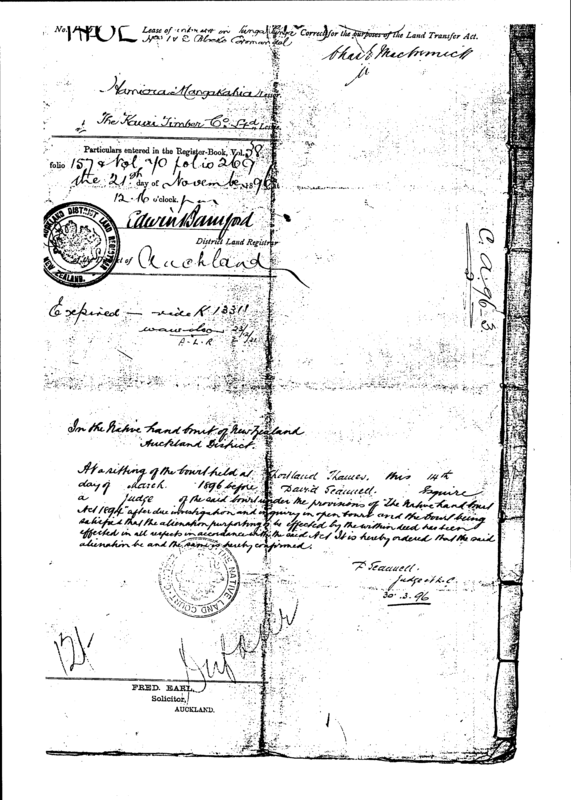 No. Lease of interest on Correct for the purposes of the Land Transfer Act.
Nos 1 & C Block Coromandel
Hamiora Mangakahia Lessor
to The Kauri Timber Co Ltd Lessee
Particulars entered in the Register-Book, Vol. 38
folio 157 & Vol 70 folio 269
the 21st day of November 1896
12.16 o'clock.
Edwin Bamford
District Land Registrar
of Auckland
AUCKLAND DISTRICT LAND REGISTRAR
NEW ZEALAND.
C. a. 96-3
Expired — vide K 13311
A-L-R
In the Native Land Court of New Zealand
Auckland District.
At a sitting of the Court held at Shortland Thames, this 14th
day of March 1896 before David Scannell. Esquire
a Judge of the said Court under the provisions of The Native Land Court
Act 1894 after due investigation and inquiry in open Court and the Court being
satisfied that the alienation purporting to be effected by the within deed has been
effected in all respects in accordance with the said Act It is hereby ordered that the said
alienation be and the same is hereby confirmed.
D Scannell.
Judge N.L.C.
30.3.96
THE NATIVE LAND COURT
12/-
FRED. EARL,
Solicitor,
AUCKLAND.